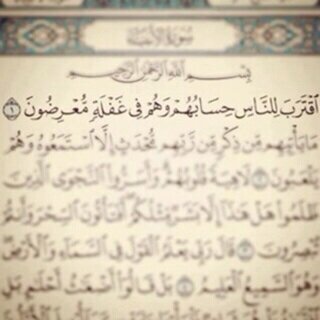 سورة الأنبياء
بسم الله الرحمن الرحيم
ٱقْتَرَبَ لِلنَّاسِ حِسَابُهُمْ وَهُمْ فِى غَفْلَةٍ مُّعْرِضُونَ ١
مَا يَأْتِيهِم مِّن ذِكْرٍ مِّن رَّبِّهِم مُّحْدَثٍ إِلَّا ٱسْتَمَعُوهُ وَهُمْ
يَلْعَبُونَ ٢ لَاهِيَةً قُلُوبُهُمْ وَأَسَرُّوا۟ ٱلنَّجْوَى ٱلَّذِينَ
ظَلَمُوا۟ هَلْ هَٰذَآ إِلَّا بَشَرٌ مِّثْلُكُمْ أَفَتَأْتُونَ ٱلسِّحْرَ وَأَنتُمْ
تُبْصِرُونَ ٣ قَالَ رَبِّى يَعْلَمُ ٱلْقَوْلَ فِى ٱلسَّمَآءِ وَٱلْأَرْضِ
وَهُوَ ٱلسَّمِيعُ ٱلْعَلِيمُ ٤ بَلْ قَالُوٓا۟ أَضْغَٰثُ أَحْلَٰمٍۭ بَلِ